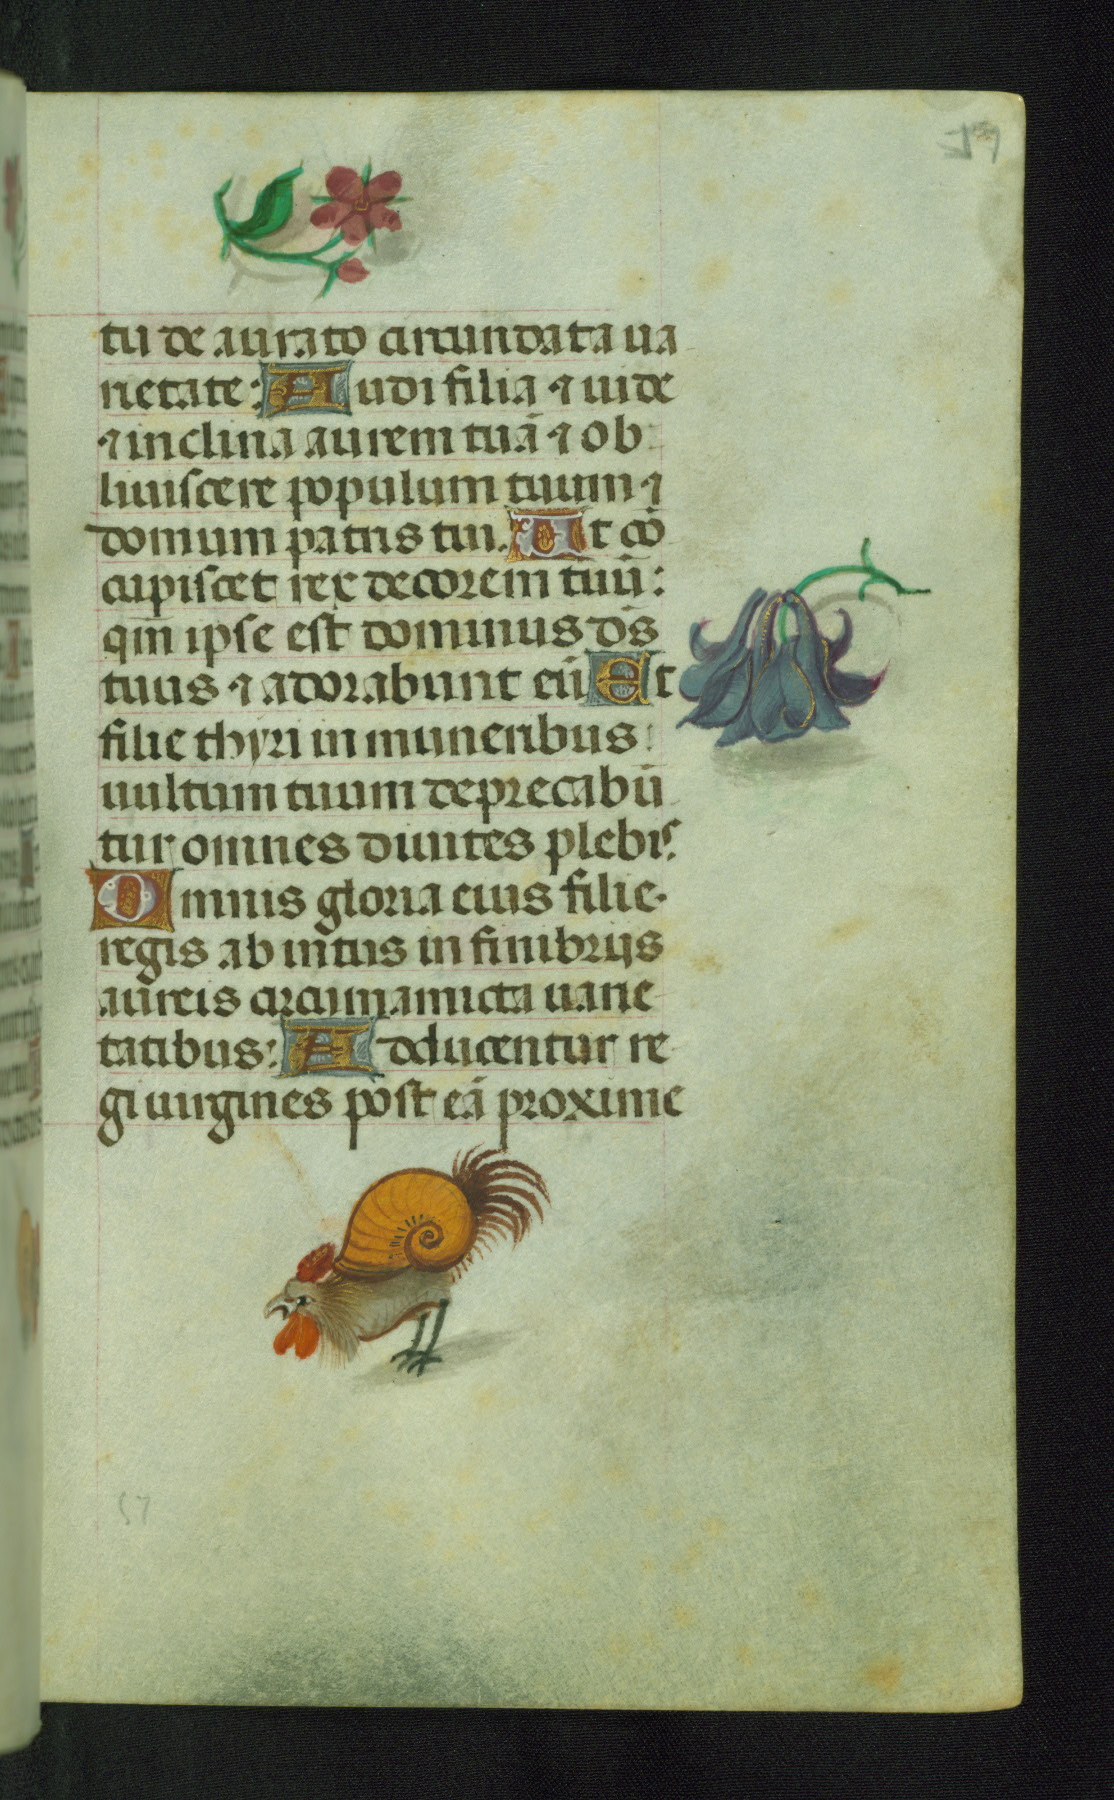 59
tu de aurato circundata ua
rietate: Audi filia ⁊ uide
⁊ inclina aurem tuā ⁊ ob
liuiscere populum tuum ⁊
domum patris tui. Et cō
cupiscet rex decorem tuū:
qm̄ ipse est dominus dn̄s
tuus ⁊ adorabunt eū Et
filie thyri in muneribus:
uultum tuum deprecabū
tur omnes diuites plebis.
Omnis gloria eius filie
regis ab intus in finibriis
aureis circumamicta uarie
tatibus: Adducentur re
gi uirgines post eā proxime
57